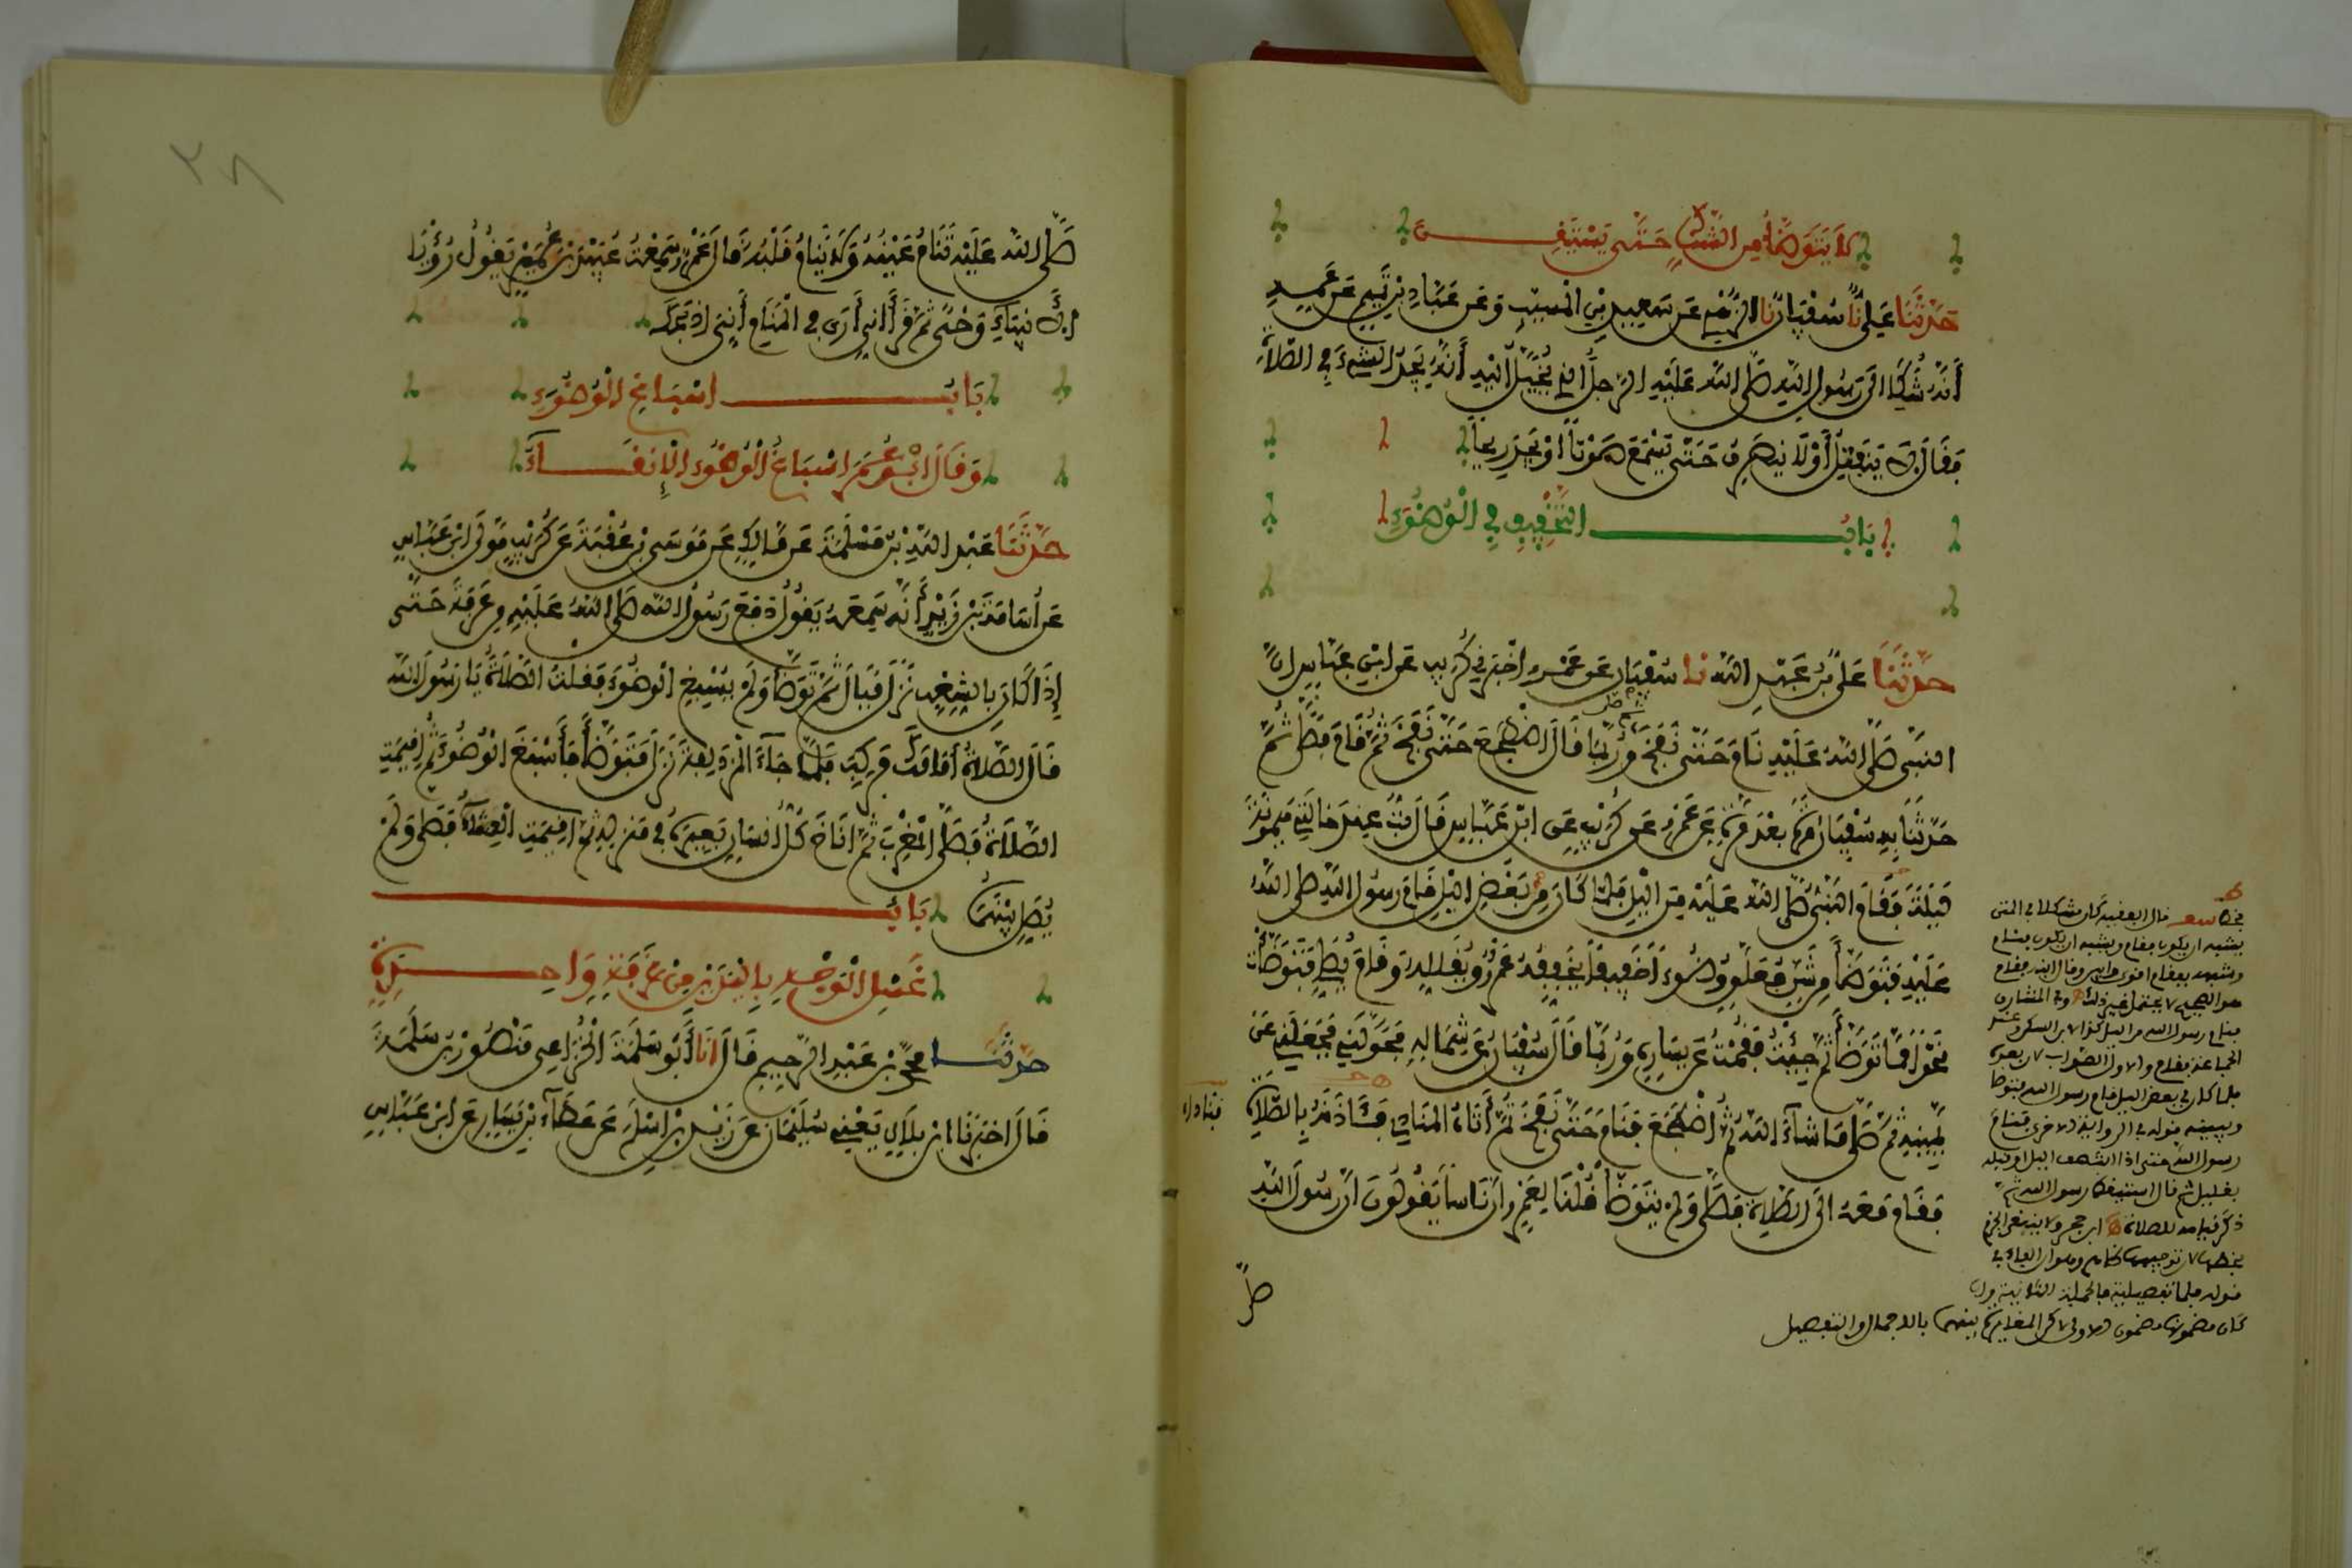 لا يتوضأ من الشك حتى يستيقن
حدثنا علي نا سفيان نا الزهري عن سعيد بن المسيب وعن عباد بن تميم عن عمه
أنه شكا الى رسول الله صلى الله عليه الرجل الذي يخيل اليه أنه يجد الشيء في الصلاة
فقال لا ينفتل أو لا ينصرف حتى يسمع صوتا او يجد ريحا
باب التخفيف في الوضوء
حدثنا علي بن عبد الله نا سفيان عن عمرو اخبرني كريب عن ابن عباس ان
النبي صلى الله عليه نام حتى نفخ ثم صلى وربما قال اضطجع حتى نفخ ثم قام فصلى ثم
حدثنا به سفيان مرة بعد مرة عن عمرو عن كريب عن ابن عباس قال بت عند خالتي ميمونة
ليلة فقام النبي صلى الله عليه من الليل فلما كان من بعض الليل قام رسول الله صلى الله
عليه فتوضأ من شن معلق وضوءا خفيفا يخففه عمرو ويقلله وقام يصلي فتوضأت
نحوا مما توضأ ثم جئت فقمت عن يساره وربما قال سفيان عن شماله فحولني فجعلني عن
يمينه ثم صلى ما شاء الله ثم اضطجع فنام حتى نفخ ثم أتاه المنادي فآذنه بالصلاة
فناداه
فقام معه الى الصلاة فصلى ولم يتوضأ قلنا لعمرو ان ناسا يقولون ان رسول الله
صلى
قال ابو الفرج كان شكلا في المتن
يشبه ان يكون فقام ويشبه ان يكون فنام
فنام رسول الله من الليل
فلما كان في بعض الليل قام رسول الله فتوضا
رسول الله حتى اذا انتصف الليل او قبله
بقليل ثم قال استيقظ رسول الله ثم
بينهما بالاجمال والتفصيل
٢٨
صلى الله عليه تنام عينه ولا ينام قلبه قال عمرو سمعت عبيد بن عمير يقول رؤيا
الانبياء وحي ثم قرأ اني أرى في المنام أني اذبحك
باب اسباغ الوضوء
وقال ابن عمر اسباغ الوضوء الإنقاء
حدثنا عبد الله بن مسلمة عن مالك عن موسى بن عقبة عن كريب مولى ابن عباس
عن أسامة بن زيد أنه سمعه يقول دفع رسول الله صلى الله عليه من عرفة حتى
إذا كان بالشعب نزل فبال ثم توضأ ولم يسبغ الوضوء فقلت الصلاة يا رسول الله
قال الصلاة أمامك فركب فلما جاء المزدلفة نزل فتوضأ فأسبغ الوضوء ثم اقيمت
الصلاة فصلى المغرب ثم اناخ كل انسان بعيره في منزله ثم اقيمت العشاء فصلى ولم
يصل بينهما باب
غسل الوجه باليدين من غرفة واحدة
حدثنا محمد بن عبد الرحيم قال أنا أبو سلمة الخزاعي منصور بن سلمة
قال اخبرنا ابن بلال يعني سليمان عن زيد بن اسلم عن عطاء بن يسار عن ابن عباس